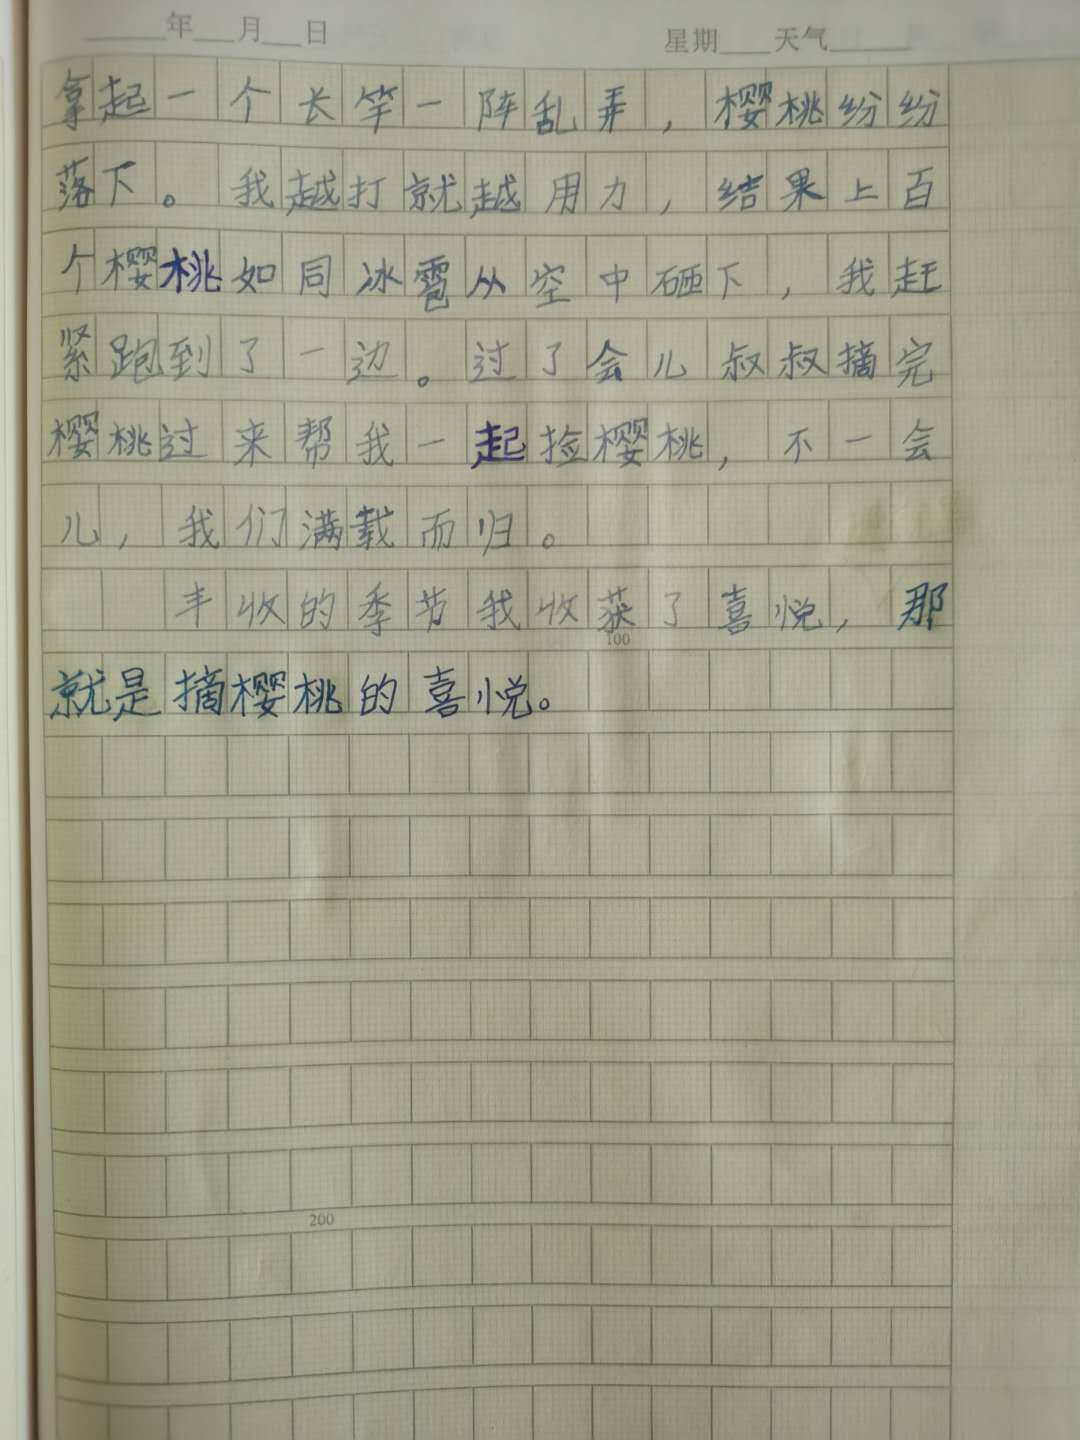 年 月 日 星期 天气
拿起一个长竿一阵乱弄,樱桃纷纷
落下。我越打就越用力,结果上百
个樱桃如同冰雹从空中砸下,我赶
紧跑到了一边。过了会儿叔叔摘完
樱桃过来帮我一起捡樱桃,不一会
儿,我们满载而归。
丰收的季节我收获了喜悦,那
100
就是摘樱桃的喜悦。
200